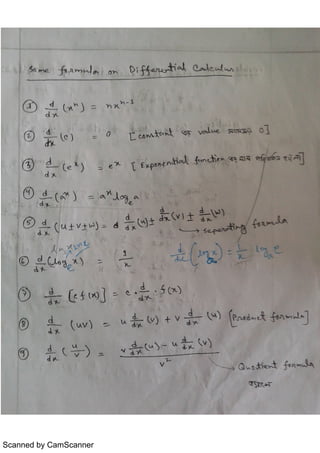 Some formula on Differential Calculus
① d/dx (xⁿ) = nxⁿ⁻¹
② d/dx (c) = 0 [constant এর value সবসময় 0]
③ d/dx (eˣ) = eˣ [Exponential function এর মান
④ d/dx (aˣ) = aˣ logₑa
⑤ d/dx (u±v±w) = d d/dx (u) ± d/dx (v) ± d/dx (w)
→ separating formula
⑥ d/dx (logₑx) = 1/x d/dx (log x) = 1/x logₐe
⑦ d/dx [c f(x)] = c · d/dx · f(x)
⑧ d/dx (uv) = u d/dx (v) + v d/dx (u) [Product formula]
⑨ d/dx (u/v) = v d/dx (u) − u d/dx (v) / v²
→ Quotient formula
Scanned by CamScanner